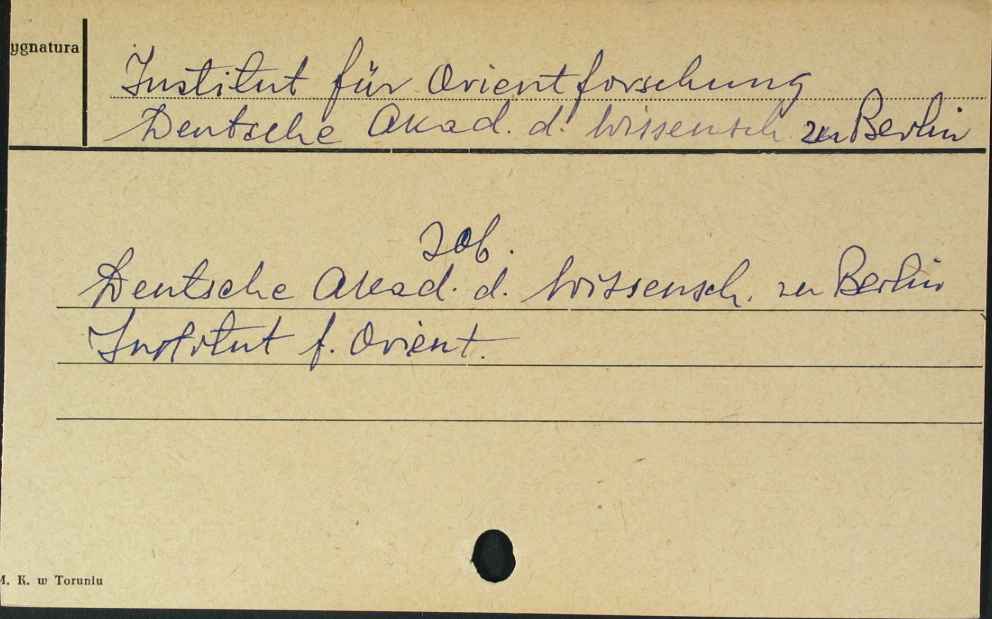 ygnatura
Institut für Orientforschung
Deutsche Akad. d. Wissensch zu Berlin
Zob.
Deutsche Akad. d. Wissensch. zu Berlin
Institut f. Orient.
M. K. w Toruniu